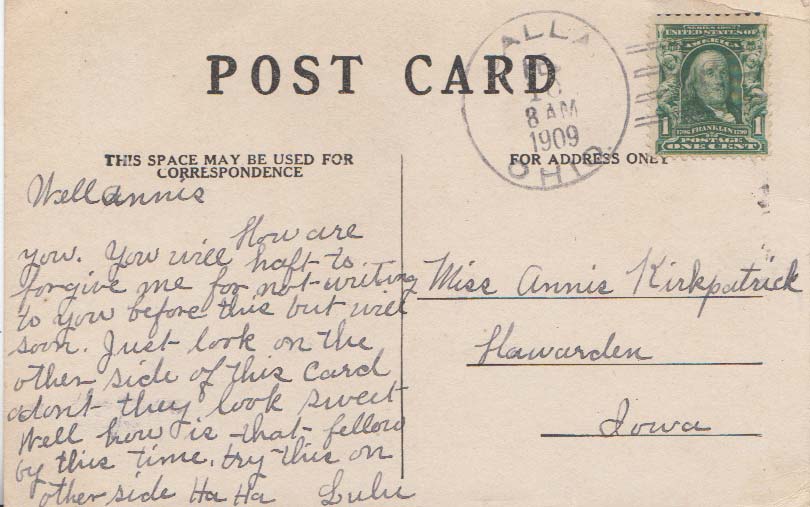 POST CARD
ALLA
10
8 AM
1909
OHIO.
SERIES 1902
UNITED STATES OF
AMERICA
1
1706 FRANKLIN 1790
1
POSTAGE
ONE CENT
THIS SPACE MAY BE USED FOR
CORRESPONDENCE
FOR ADDRESS ONLY
Well Annis
How are
you. You will haft to
forgive me for not writing
to you before this but will
soon. Just look on the
other side of this card
dont they look sweet
Well how is that fellow
by this time. try this on
other side Ha Ha Lulu
Miss Annis Kirkpatrick
Hawarden
Iowa